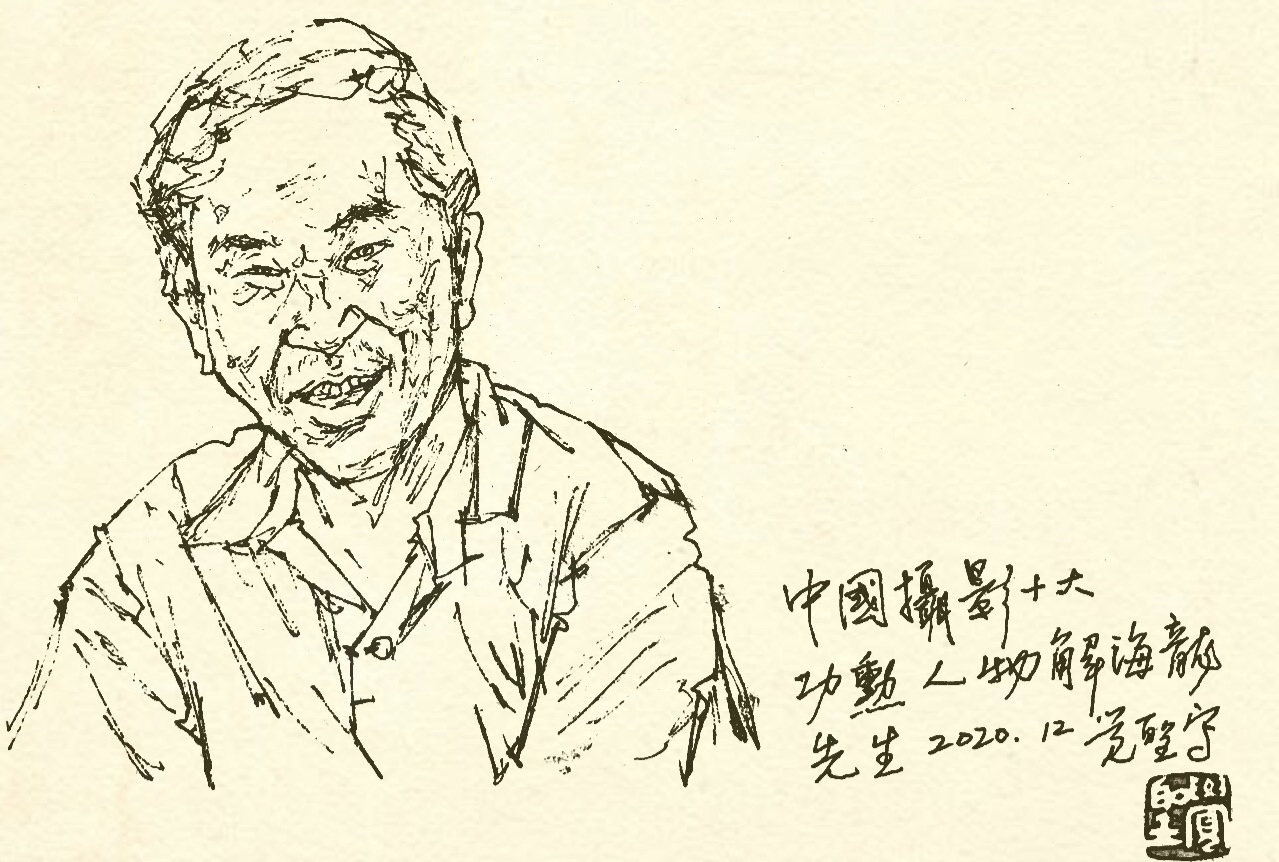 中國攝影十大
功勳人物解海龍
先生 2020.12 觉聖写